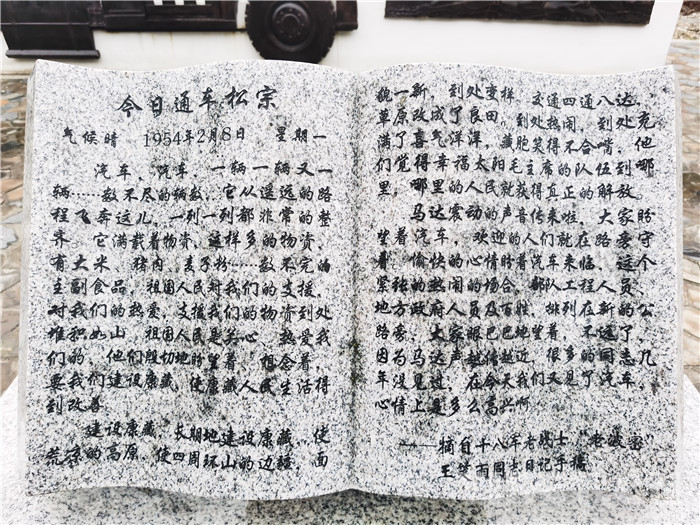 今日通车松宗
气候晴 1954年2月8日 星期一
汽车，汽车，一辆一辆又一
辆……数不尽的辆数，它从遥远的路
程飞奔这儿，一列一列都非常的整
齐。它满载着物资，这样多的物资，
有大米、猪肉、麦子粉……数不完的
主副食品，祖国人民对我们的支援，
对我们的热爱，支援我们的物资到处
堆积如山，祖国人民是关心、热爱我
们的，他们殷切地盼望着，想念着，
要我们建设康藏，使康藏人民生活得
到改善。
建设康藏，长期地建设康藏，使
荒凉的高原，使四周环山的边疆，面
貌一新，到处变样，交通四通八达，
草原改成了良田，到处热闹，到处充
满了喜气洋洋，藏胞笑得不合嘴，他
们觉得幸福太阳毛主席的队伍到哪
里，哪里的人民就获得真正的解放。
马达震动的声音传来啦，大家盼
望着汽车，欢迎的人们就在路旁守
着，愉快的心情盼着汽车来临，这个
紧张的热闹的场合，部队工程人员、
地方政府人员及百姓，排列在新的公
路旁，大家眼巴巴地望着，不远了，
因为马达声越传越近，很多的同志几
年没见过，在今天我们又见了汽车，
心情上是多么高兴啊
——摘自十八军老战士、“老藏密”
王雨同志日记手稿